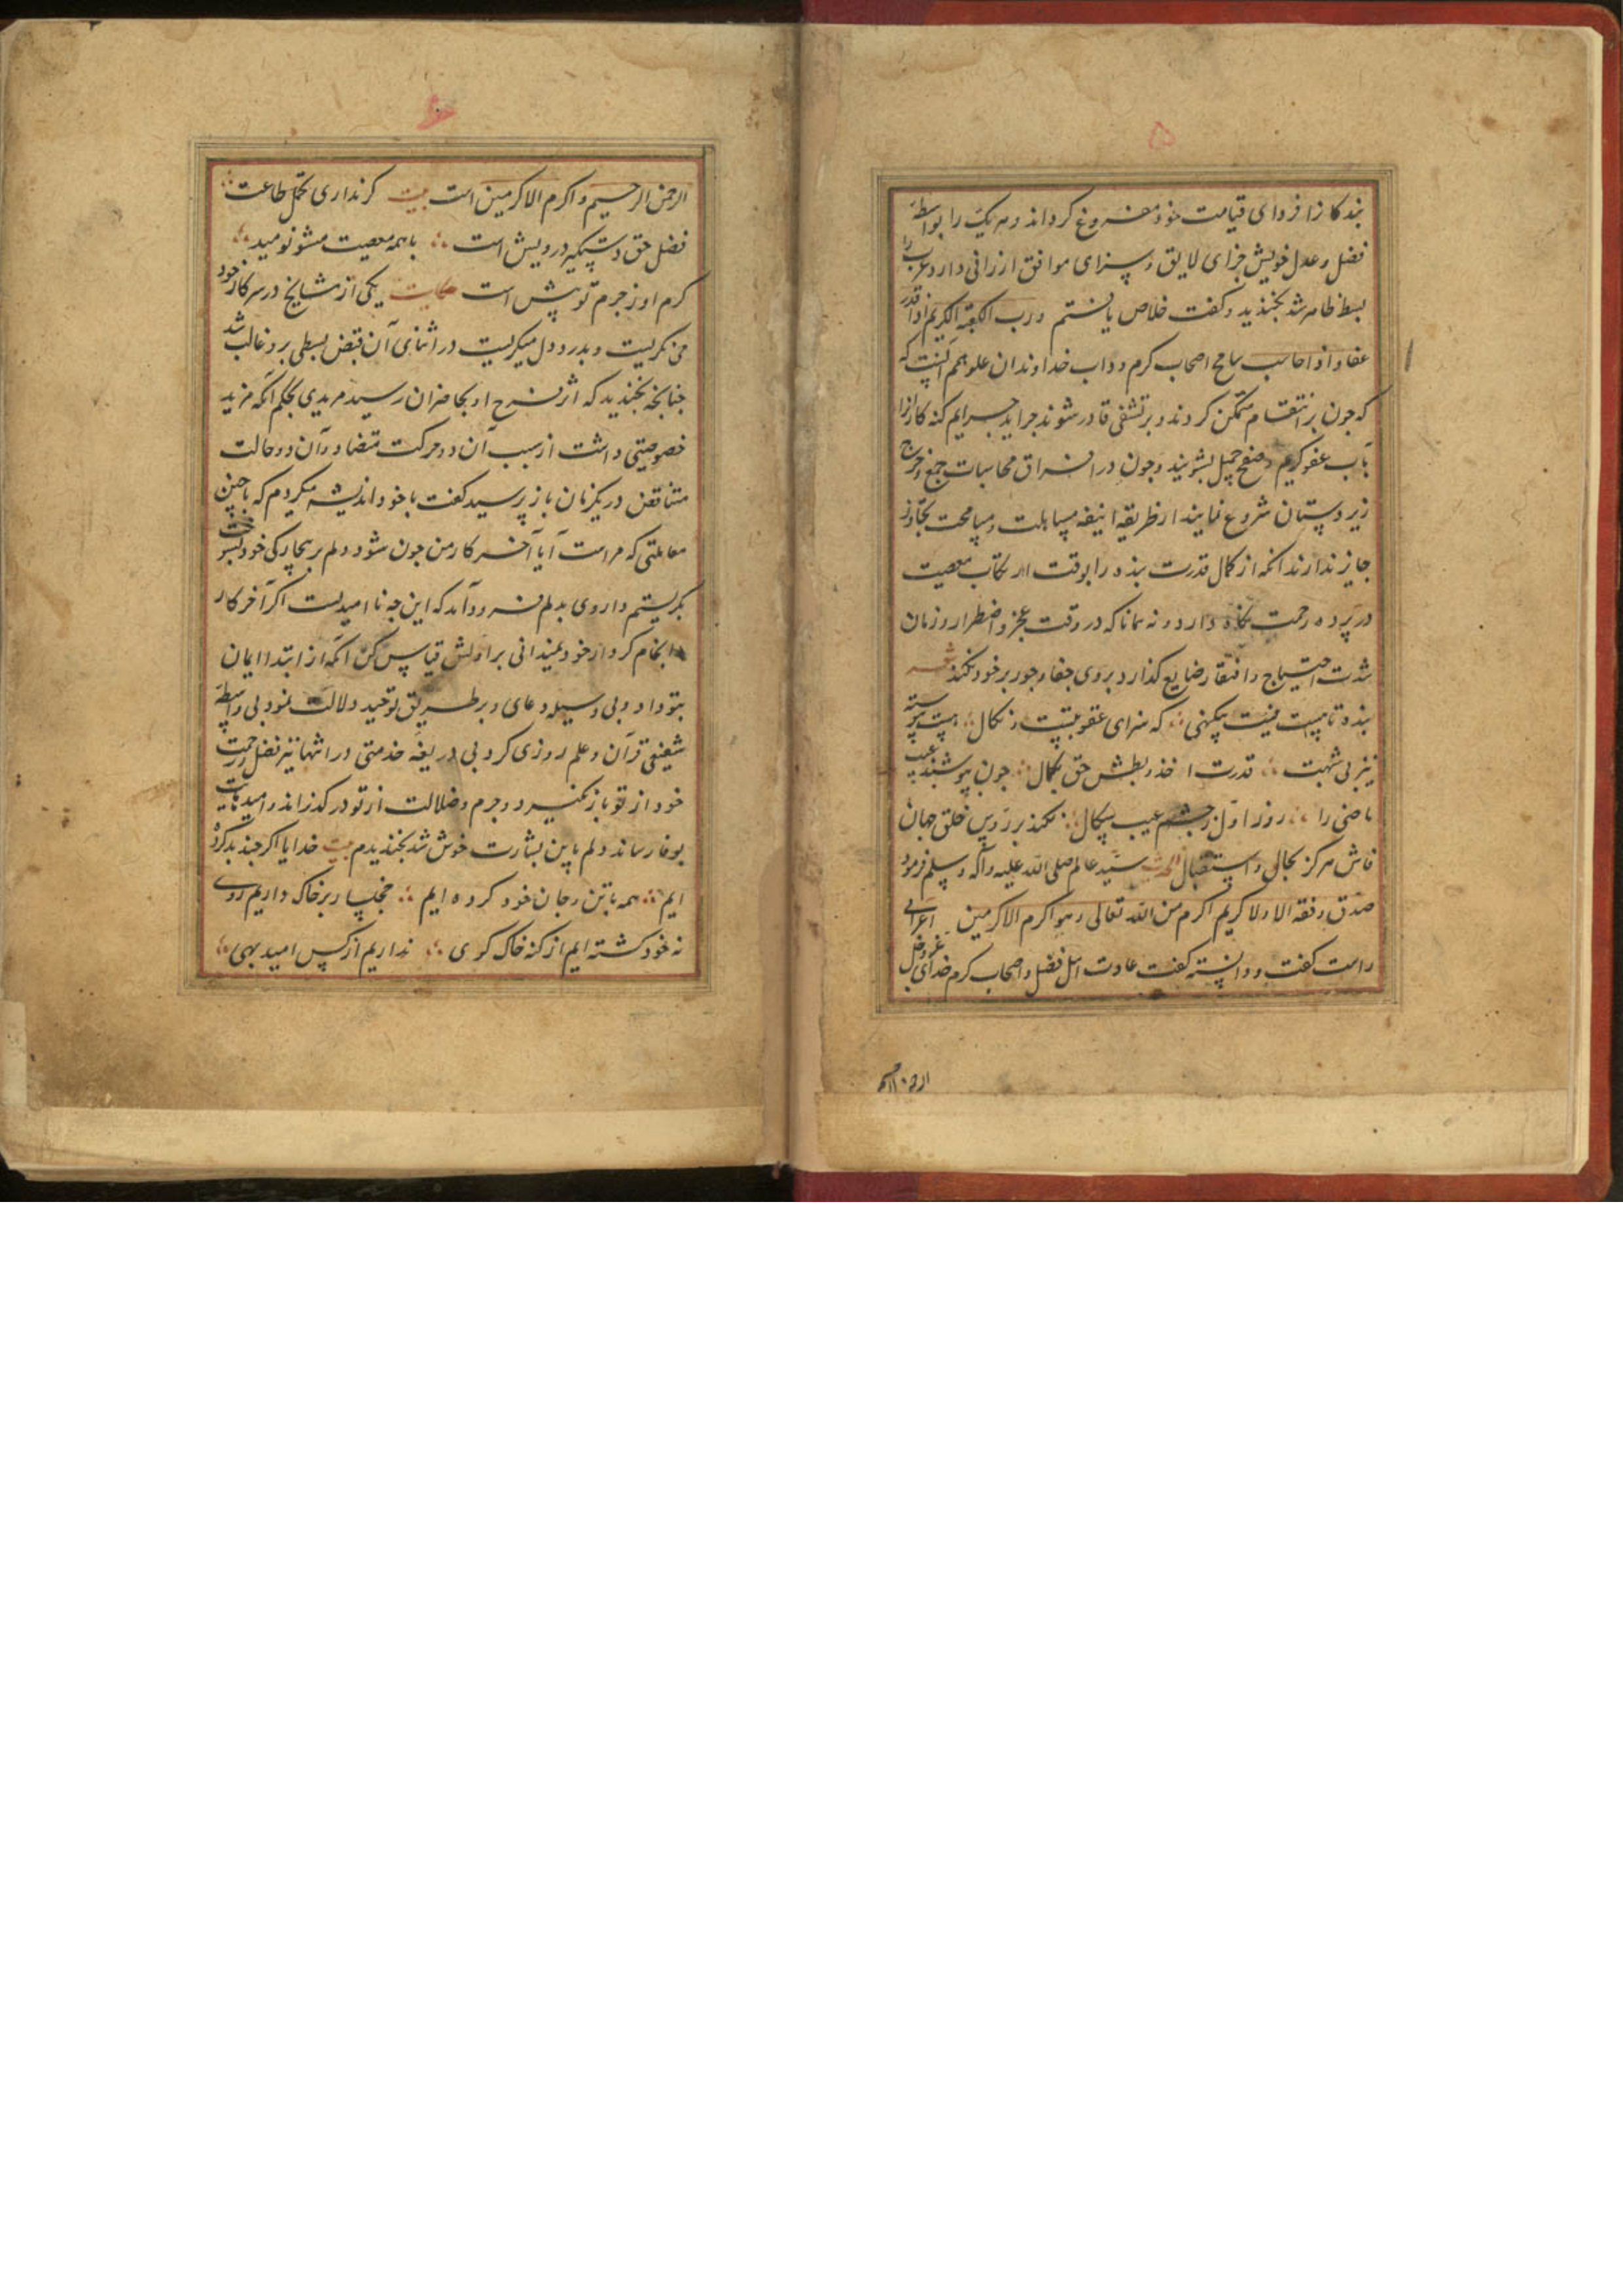 ۵
بندکانرا فردای قیامت خود مفروغ کرداند و هر یک را بواسطهٔ
فضل و عدل خویش جزای لایق و سزای موافق ارزانی دارد عرب را
بسط ظاهر شد بخندید و کفت خلاص یافتم و رب الکعبة الکریم اذا قدر
عفا و اذا حاسب سامح اصحاب کرم و داب خداوندان علو همم آنست که
که جون بر انتقام متمکن کردند و بر تشفی قادر شوند جراید جرایم کنه کارانرا
بآب عفو کریم و صفح جمیل بشویند وجون در محاسبات جمع و خرج
زیر دستان شروع نمایند از طریقه انیقه مساهلت و مسامحت تجاوز
جایز ندارند آنکه از کمال قدرت بنده را بوقت ارتکاب معصیت
در پرده رحمت نکاه دارد و نه همانا که در وقت عجز و اضطرار و زمان
شدت احتیاج و افتقار ضایع کذارد و بروی جفا و جور بر خود نکند شعر
بنده تا هست نیست بیکنهی ∴ که سزای عقوبتست و نکال ∴ هست پیوسته
نیز بی شبهت ∴ قدرت اخذ و بطش حق بکمال ∴ جون بپوشند عیب
ماضی را ∴ روز اول ز جشم عیب سکال ∴ نکند بر رؤس خلق جهان
فاش هرکز بحال و استقبال الحدیث سید عالم صلی الله علیه وآله وسلم فرمود
صدق و فقه الا ولا کریم اکرم من الله تعالی و هو اکرم الاکرمین اعرابی
راست کفت و دانسته کفت عادت اهل فضل و اصحاب کرم خدای عز و جل
الرحمن الرحیم و اکرم الاکرمین است بیت کر نداری تحمل طاعت ∴
فضل حق دستکیر درویش است ∴ با همه معصیت مشو نومید ∴
کرم او ز جرم تو بیش است حکایت یکی از مشایخ در سر کار خود
می نکریست و بدرد دل میکریست در اثنای آن قبض بسطی برو غالب شد
جنانجه بخندید که اثر فرح او بحاضران رسید مریدی بحکم آنکه مزید
خصوصیتی داشت از سبب آن دو حرکت متضاد و آن دو حالت
متناقض در یکزمان باز پرسید کفت با خود اندیشه میکردم که با جنین
معاملتی که مراست آیا آخر کار من جون شود دلم بر بیچارکی خود بسوخت
بکریستم داروی بدلم فرود آمد که این جه نا امیدیست اکر آخر کار
و انجام کردار خود نمیدانی بر اولش قیاس کن آنکه از ابتدا ایمان
بتو داد و بی وسیله دعای و بر طریق توحید دلالت نمود بی واسطهٔ
شیعتی قرآن و علم روزی کرد بی ذریعهٔ خدمتی در انتها نیز فضل و رحمت
خود از تو باز نکیرد و جرم و ضلالت از تو در کذراند و امیدهایت
بوفا رساند دلم باین بشارت خوش شد بخندیدم بیت خدایا اکر جند بد کرده
ایم ∴ همه با تن و جان خود کرده ایم ∴ خاک داریم روی
نه خود کشته ایم از کنه خاک کوی ∴ نداریم از کس امید بهی ∴